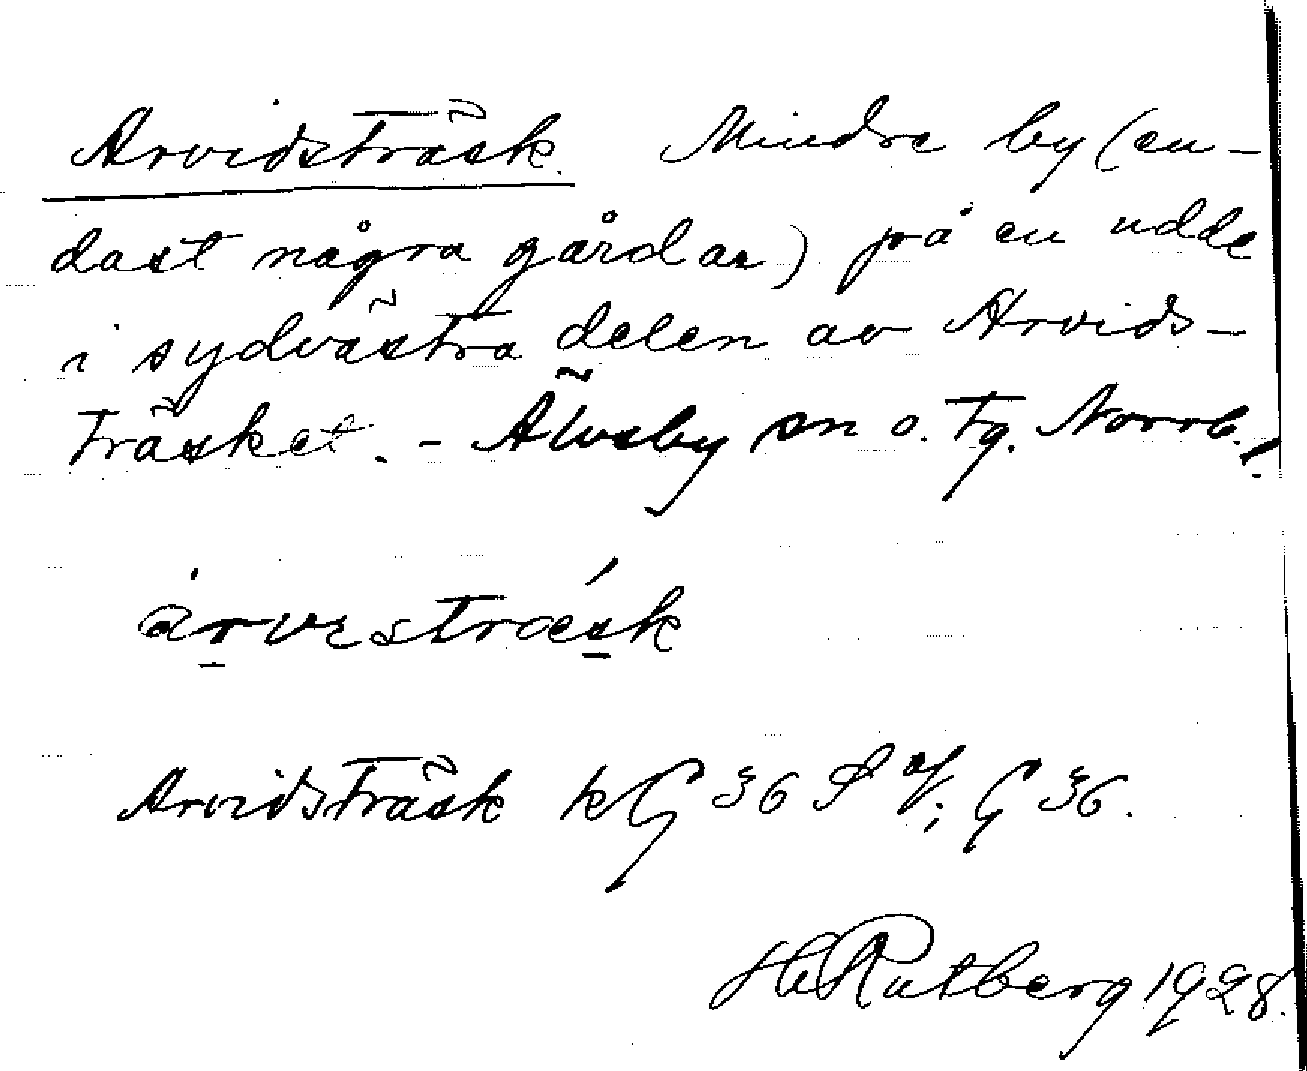 Arvidsträsk. Mindre by (en-
dast några gårdar) på en udde
i sydvästra delen av Arvids-
träsket. - Älvsby sn o. tg. Norrb. l.
årvestræsk
Arvidsträsk kG 36 S
H. Rutberg 1928.